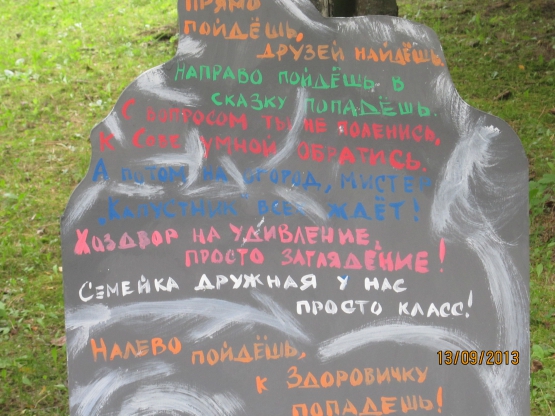 ПРЯМО
ПОЙДЁШЬ,
ДРУЗЕЙ НАЙДЁШЬ.
НАПРАВО ПОЙДЁШЬ В
СКАЗКУ ПОПАДЁШЬ.
С ВОПРОСОМ ТЫ НЕ ПОЛЕНИСЬ,
К СОВЕ УМНОЙ ОБРАТИСЬ.
А ПОТОМ НА ОГОРОД, МИСТЕР
"КАПУСТНЫЙ" ВСЕХ ЖДЁТ!
ХОЗДВОР НА УДИВЛЕНИЕ,
ПРОСТО ЗАГЛЯДЕНИЕ!
СЕМЕЙКА ДРУЖНАЯ У НАС
ПРОСТО КЛАСС!
НАЛЕВО ПОЙДЁШЬ,
К ЗДОРОВИЧКУ
ПОПАДЕШЬ!
13/09/2013